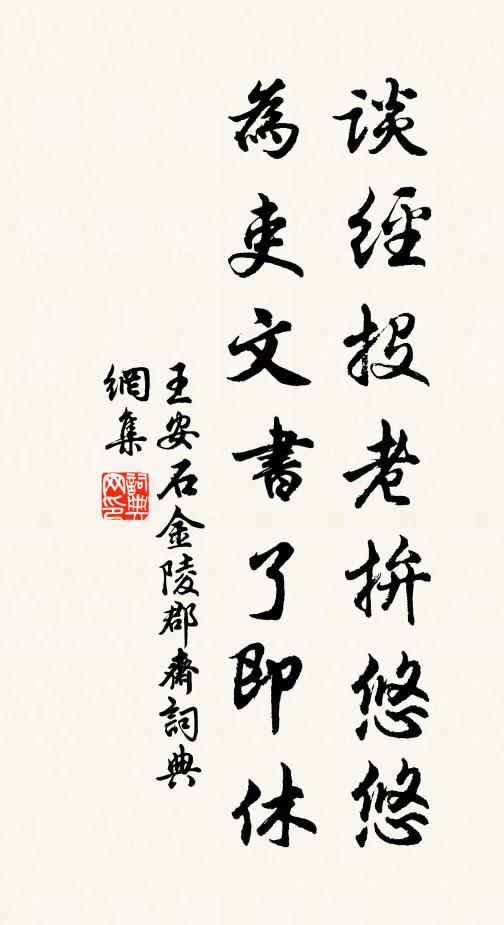 談經投老拚悠悠
為吏文書了即休
王安石金陵郡齋詞典
網集
詞典
网印